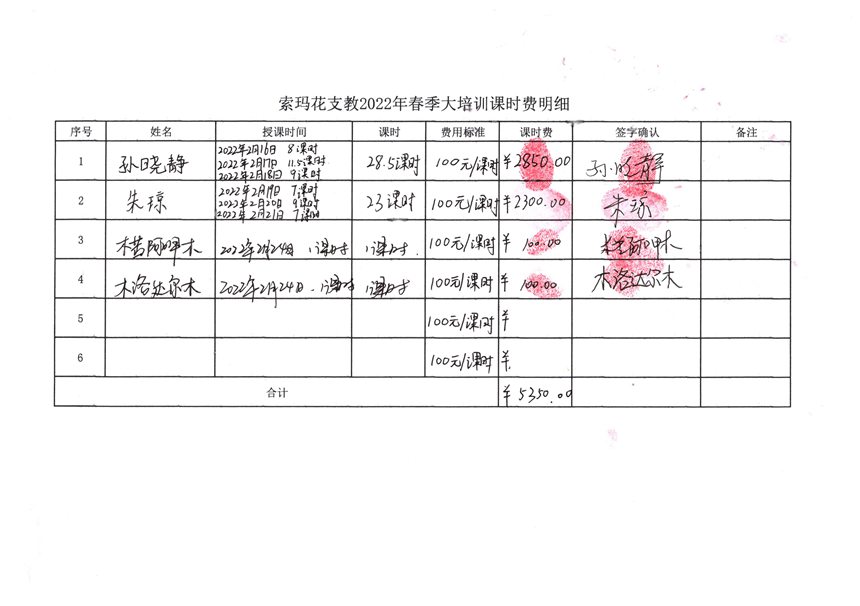 索玛花支教2022年春季大培训课时费明细
序号 姓名 授课时间 课时 费用标准 课时费 签字确认 备注
1 孙晓静 2022年2月16日 8课时 28.5课时 100元/课时 ¥2850.00 孙晓静
2022年2月17日 11.5课时
2022年2月18日 9课时
2 朱琼 2022年2月19日 7课时 23课时 100元/课时 ¥2300.00 朱琼
2022年2月20日 9课时
2022年2月21日 7课时
3 2022年2月24日 1课时 1课时 100元/课时 ¥100.00
4 木洛达尔木 2022年2月24日 1课时 1课时 100元/课时 ¥100.00 木洛达尔木
5 100元/课时 ¥
6 100元/课时 ¥
合计 ¥5350.00